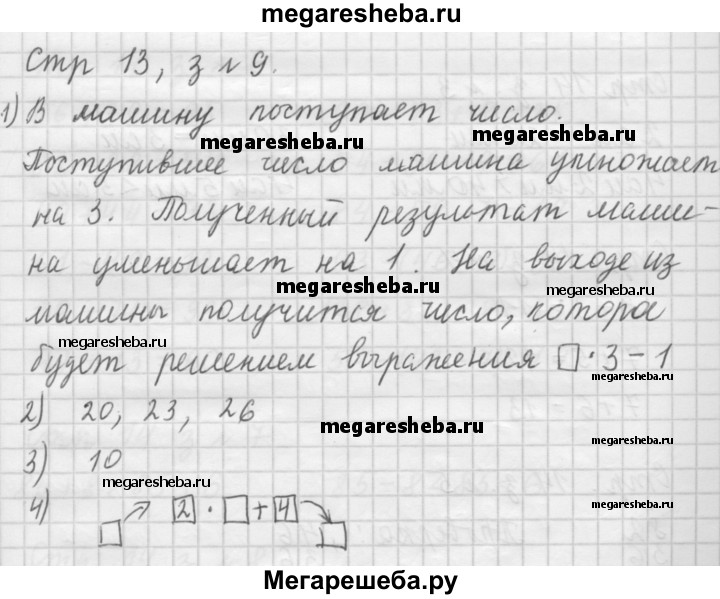 megaresheba.ru
Стр 13, з № 9.
1) В машину поступает число.
megaresheba.ru
megaresheba.ru
Поступившее число машина умножает
на 3. Полученный результат маши-
на уменьшает на 1. На выходе из
megaresheba.ru
megaresheba.ru
машины получится число, которое
megaresheba.ru
будет решением выражения □ · 3 – 1
megaresheba.ru
2) 20, 23, 26
megaresheba.ru
megaresheba.ru
3) 10
megaresheba.ru
4) □ 2 · □ + 4 □
Мегарешеба.ру